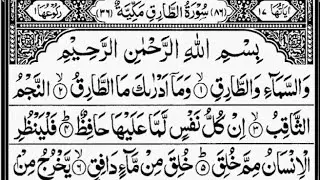 اٰيَاتُهَا ١٧ (٨٦) سُوْرَةُ الطَّارِقِ مَكِّيَّةٌ (٣٦) رُكُوْعُهَا ١
بِسْمِ اللّٰهِ الرَّحْمٰنِ الرَّحِيْمِ
وَالسَّمَآءِ وَالطَّارِقِ ۙ﴿۱﴾ وَمَآ اَدْرٰىكَ مَا الطَّارِقُ ۙ﴿۲﴾ النَّجْمُ
الثَّاقِبُ ۙ﴿۳﴾ اِنْ كُلُّ نَفْسٍ لَّمَّا عَلَيْهَا حَافِظٌ ؕ﴿۴﴾ فَلْيَنْظُرِ
الْاِنْسَانُ مِمَّ خُلِقَ ؕ﴿۵﴾ خُلِقَ مِنْ مَّآءٍ دَافِقٍ ۙ﴿۶﴾ يَّخْرُجُ مِنْۢ